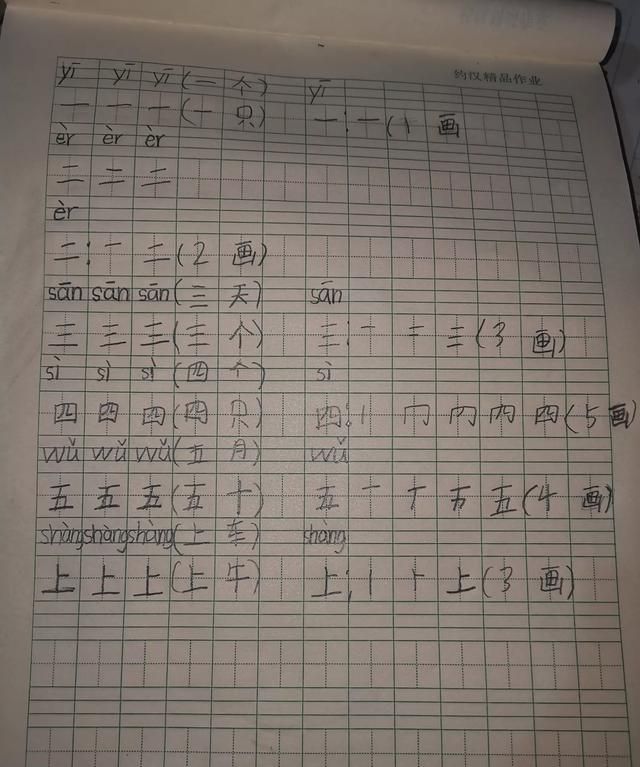 约汉精品作业
yī yī yī (一 个) yī
一 一 一 (一 只) 一: 一 (1 画)
èr èr èr
二 二 二
èr
二: 一 二 (2 画)
sān sān sān (三 天) sān
三 三 三 (三 个) 三: 一 二 三 (3 画)
sì sì sì (四 个) sì
四 四 四 (四 只) 四: 丨 冂 ��
wǔ wǔ wǔ (五 月) wǔ
五 五 五 (五 十) 五 一 丅 五 (4 画)
shàng shàng shàng (上 车) shàng
上 上 上 (上 午) 上: 丨 ⺊ 上 (3 画)